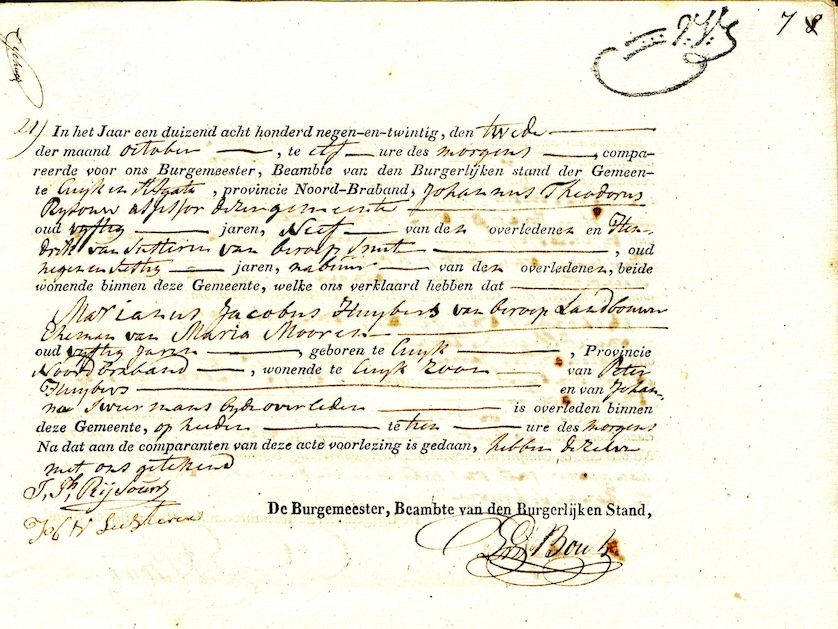 7 8
21) In het Jaar een duizend acht honderd negen-en-twintig, den twede
der maand october, te elf ure des morgens, compa-
reerde voor ons Burgemeester, Beambte van den Burgerlijken stand der Gemeen-
te Cuyk en St Agatha, provincie Noord-Braband, Johannus Theodorus
Rysouw assessor dezer gemeente
oud vyftig jaren, Neef van den overledenen en Hen-
drik van van beroep Smit, oud
negen en jaren, nabuur van den overledenen, beide
wonende binnen deze Gemeente, welke ons verklaard hebben dat
Marianus Jacobus Huybers van beroep Landbouwer
Eheman van Maria Mooren
oud vyftig Jaren, geboren te Cuyk, Provincie
Noordbraband, wonende te Cuyk Zoon van Peter
Huybers en van Johan-
na byde overleden is overleden binnen
deze Gemeente, op heeden te tien ure des morgens
Na dat aan de comparanten van deze acte voorlezing is gedaan, hebben dezelve
met ons getekend
De Burgemeester, Beambte van den Burgerlijken Stand,